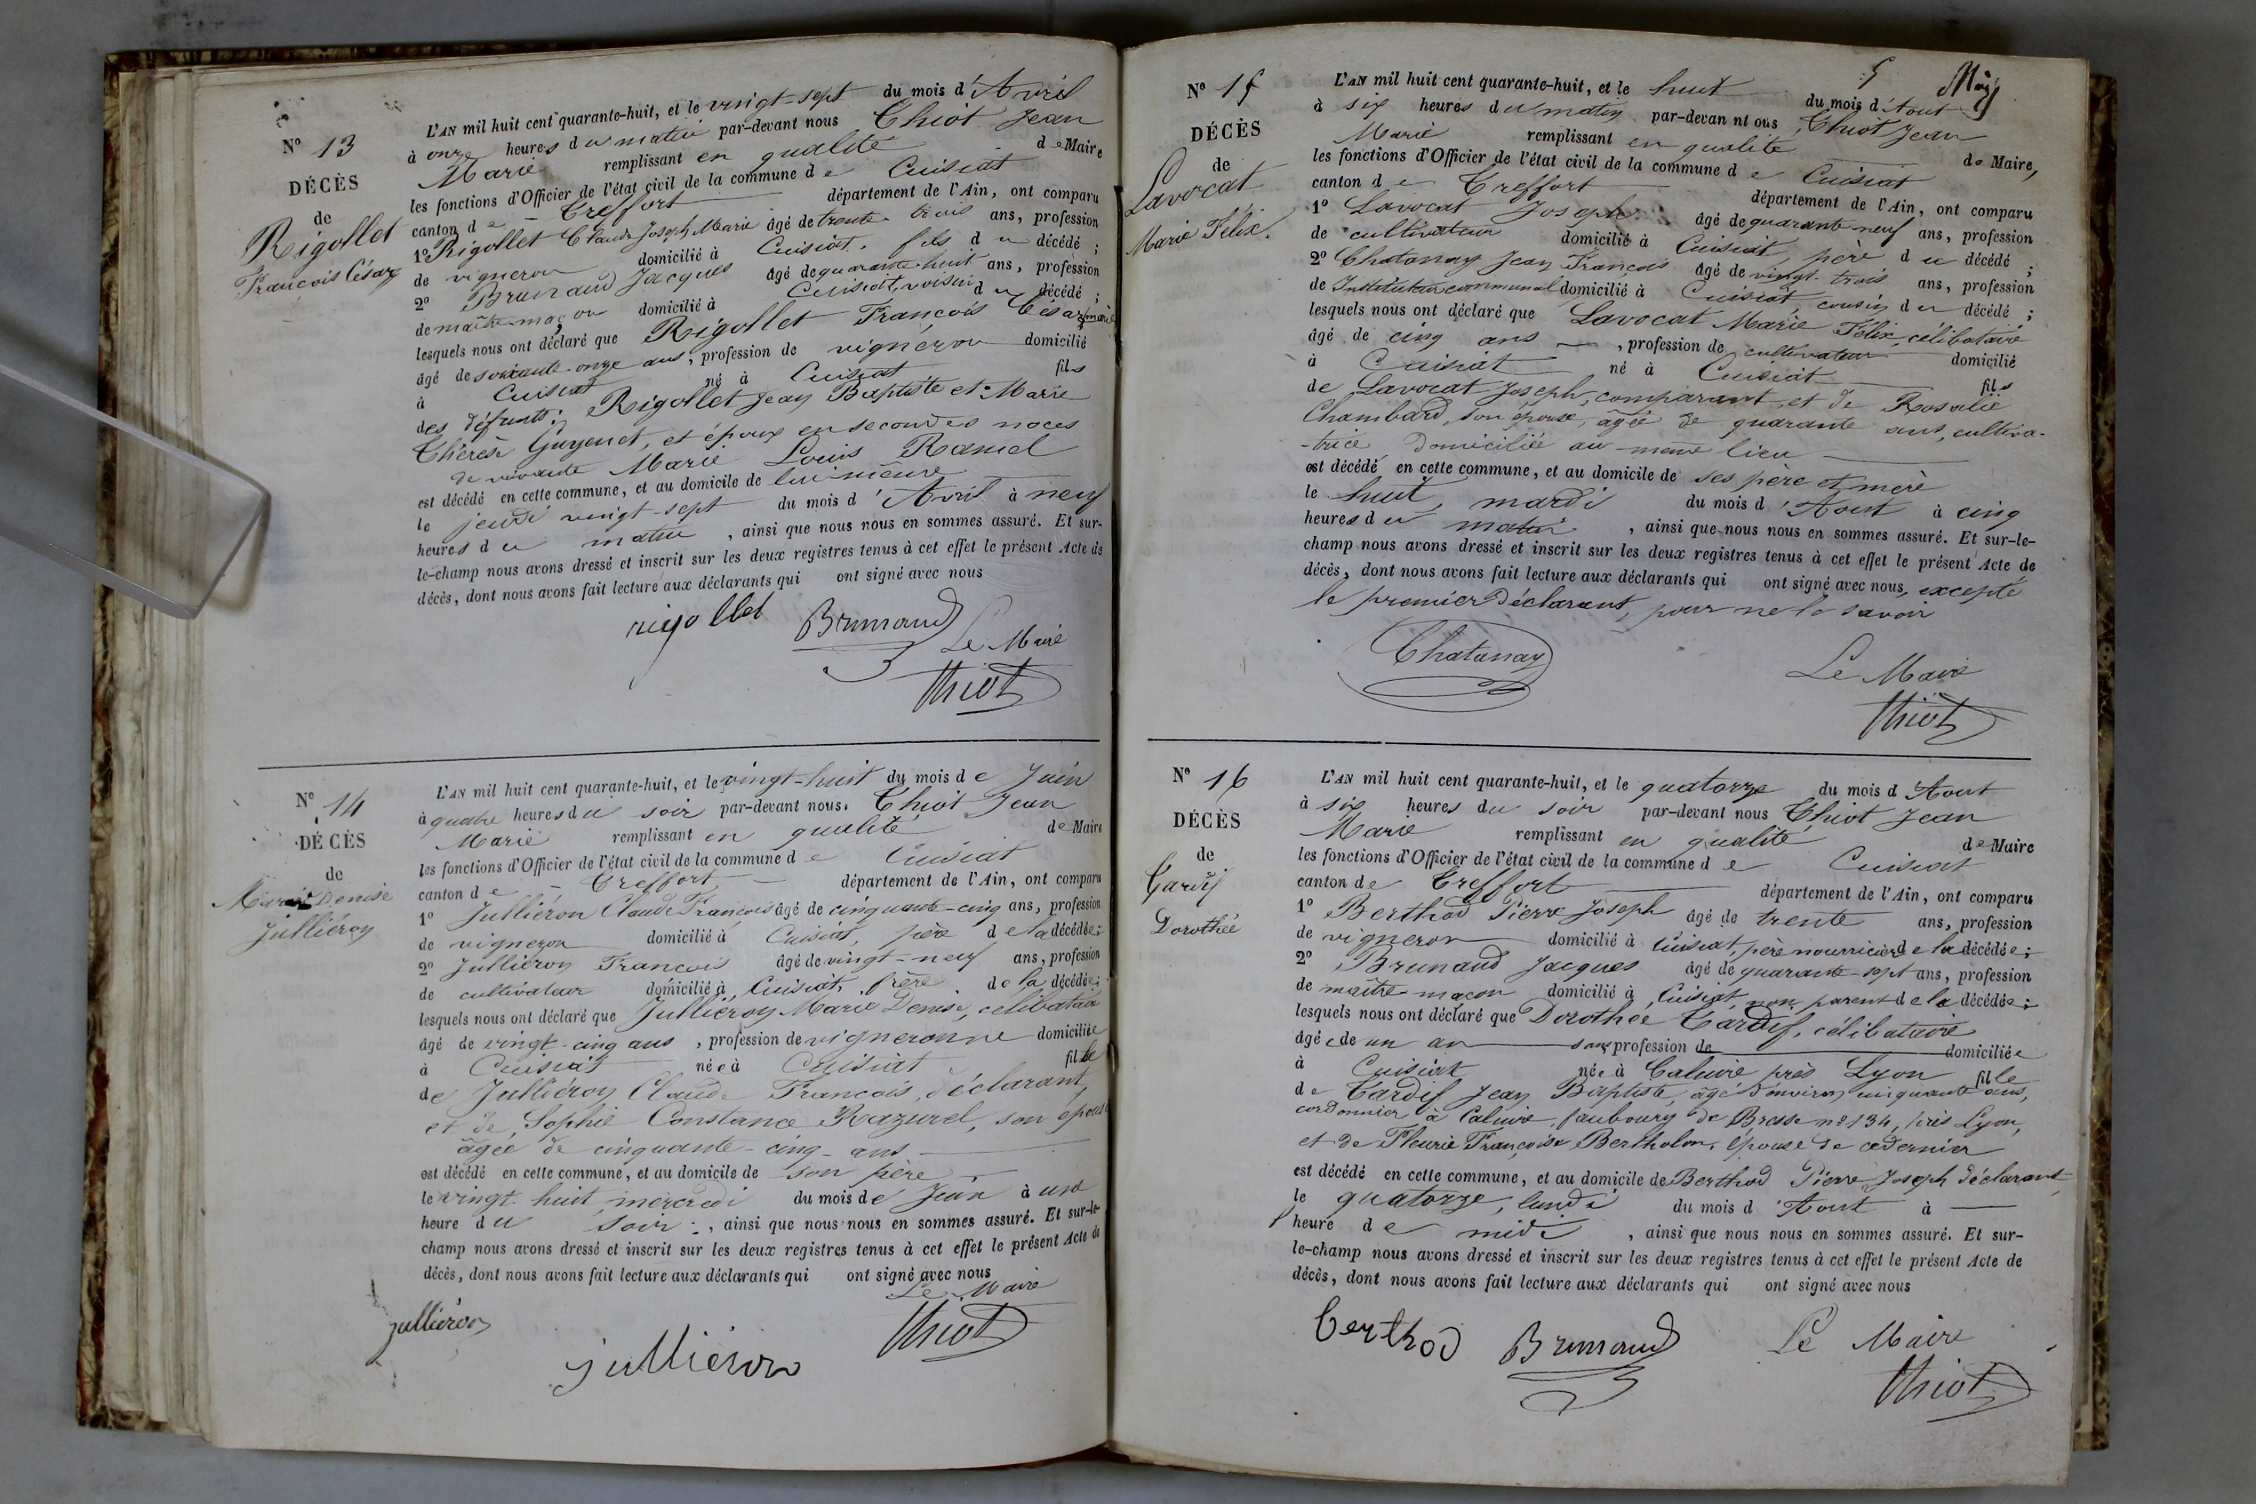 N° 13
DÉCÈS
de
Rigollet
François César
L'AN mil huit cent quarante-huit, et le vingt-sept du mois d'Avril
à onze heures du matin par-devant nous Thiot Jean
Marie remplissant en qualité de Maire
les fonctions d'Officier de l'état civil de la commune de Cuisiat
canton de Treffort département de l'Ain, ont comparu
1° Rigollet Claude Joseph Marie âgé de trente-trois ans, profession
de vigneron domicilié à Cuisiat, fils du décédé ;
2° Brunaud Jacques âgé de quarante-huit ans, profession
de maître-maçon domicilié à Cuisiat, voisin du décédé ;
lesquels nous ont déclaré que Rigollet François César, marié
âgé de soixante-onze ans, profession de vigneron domicilié
à Cuisiat né à Cuisiat fils
des défunts Rigollet Jean Baptiste et Marie
Thérèse Guyenet, et époux en secondes noces
de vivante Marie Louis Ramel
est décédé en cette commune, et au domicile de lui-même
le jeudi vingt-sept du mois d'Avril à neuf
heures du matin, ainsi que nous nous en sommes assuré. Et sur-
le-champ nous avons dressé et inscrit sur les deux registres tenus à cet effet le présent Acte de
décès, dont nous avons fait lecture aux déclarants qui ont signé avec nous
rigollet Brunaud Le Maire
Thiot
N° 14
DÉCÈS
de
Marie Denise
Julliéron
L'AN mil huit cent quarante-huit, et le vingt-huit du mois de Juin
à quatre heures du soir par-devant nous Thiot Jean
Marie remplissant en qualité de Maire
les fonctions d'Officier de l'état civil de la commune de Cuisiat
canton de Treffort département de l'Ain, ont comparu
1° Julliéron Claude François âgé de cinquante-cinq ans, profession
de vigneron domicilié à Cuisiat, père de la décédée ;
2° Julliéron François âgé de vingt-neuf ans, profession
de cultivateur domicilié à Cuisiat, frère de la décédée ;
lesquels nous ont déclaré que Julliéron Marie Denise, célibataire
âgé de vingt-cinq ans, profession de vigneronne domiciliée
à Cuisiat née à Cuisiat fille
de Julliéron Claude François, déclarant,
et de Sophie Constance Razurel, son épouse
âgée de cinquante-cinq ans
est décédé en cette commune, et au domicile de son père
le vingt-huit, mercredi du mois de Juin à une
heure du soir, ainsi que nous nous en sommes assuré. Et sur-le-
champ nous avons dressé et inscrit sur les deux registres tenus à cet effet le présent Acte de
décès, dont nous avons fait lecture aux déclarants qui ont signé avec nous
Le Maire
julliéron julliéron Thiot
5
N° 15
DÉCÈS
de
Lavocat
Marie Félix.
L'AN mil huit cent quarante-huit, et le huit du mois d'Aout
à six heures du matin par-devan nt ous Thiot Jean
Marie remplissant en qualité de Maire,
les fonctions d'Officier de l'état civil de la commune de Cuisiat
canton de Treffort département de l'Ain, ont comparu
1° Lavocat Joseph âgé de quarante-neuf ans, profession
de cultivateur domicilié à Cuisiat, père du décédé ;
2° Chatanay Jean François âgé de vingt-trois ans, profession
de Instituteur communal domicilié à Cuisiat, cousin du décédé ;
lesquels nous ont déclaré que Lavocat Marie Félix, célibataire
âgé de cinq ans, profession de cultivateur domicilié
à Cuisiat né à Cuisiat fils
de Lavocat Joseph, comparant, et de Rosalie
Chambard, son épouse, âgée de quarante ans, cultiva-
-trice, domiciliée au même lieu
est décédé en cette commune, et au domicile de ses père et mère
le huit, mardi du mois d'Aout à cinq
heures du matin, ainsi que nous nous en sommes assuré. Et sur-le-
champ nous avons dressé et inscrit sur les deux registres tenus à cet effet le présent Acte de
décès, dont nous avons fait lecture aux déclarants qui ont signé avec nous, excepté
le premier déclarant, pour ne le savoir
Chatanay Le Maire
Thiot
N° 16
DÉCÈS
de
Tardif
Dorothée
L'AN mil huit cent quarante-huit, et le quatorze du mois d'Aout
à six heures du soir par-devant nous Thiot Jean
Marie remplissant en qualité de Maire
les fonctions d'Officier de l'état civil de la commune de Cuisiat
canton de Treffort département de l'Ain, ont comparu
1° Berthod Pierre Joseph âgé de trente ans, profession
de vigneron domicilié à Cuisiat, père nourricier de la décédée ;
2° Brunaud Jacques âgé de quarante-sept ans, profession
de maître-maçon domicilié à Cuisiat, non parent de la décédée ;
lesquels nous ont déclaré que Dorothée Tardif, célibataire
âgée de un an sans profession de domiciliée
à Cuisiat née à Caluire près Lyon fille
de Tardif Jean Baptiste, âgé d'environ cinquante ans,
cordonnier à Caluire, faubourg de Bresse n° 134, près Lyon,
et de Fleurie Françoise Bertholon, épouse de ce dernier
est décédé en cette commune, et au domicile de Berthod Pierre Joseph déclarant,
le quatorze, lundi du mois d'Aout à
heure de midi, ainsi que nous nous en sommes assuré. Et sur-
le-champ nous avons dressé et inscrit sur les deux registres tenus à cet effet le présent Acte de
décès, dont nous avons fait lecture aux déclarants qui ont signé avec nous
berthod Brunaud Le Maire
Thiot